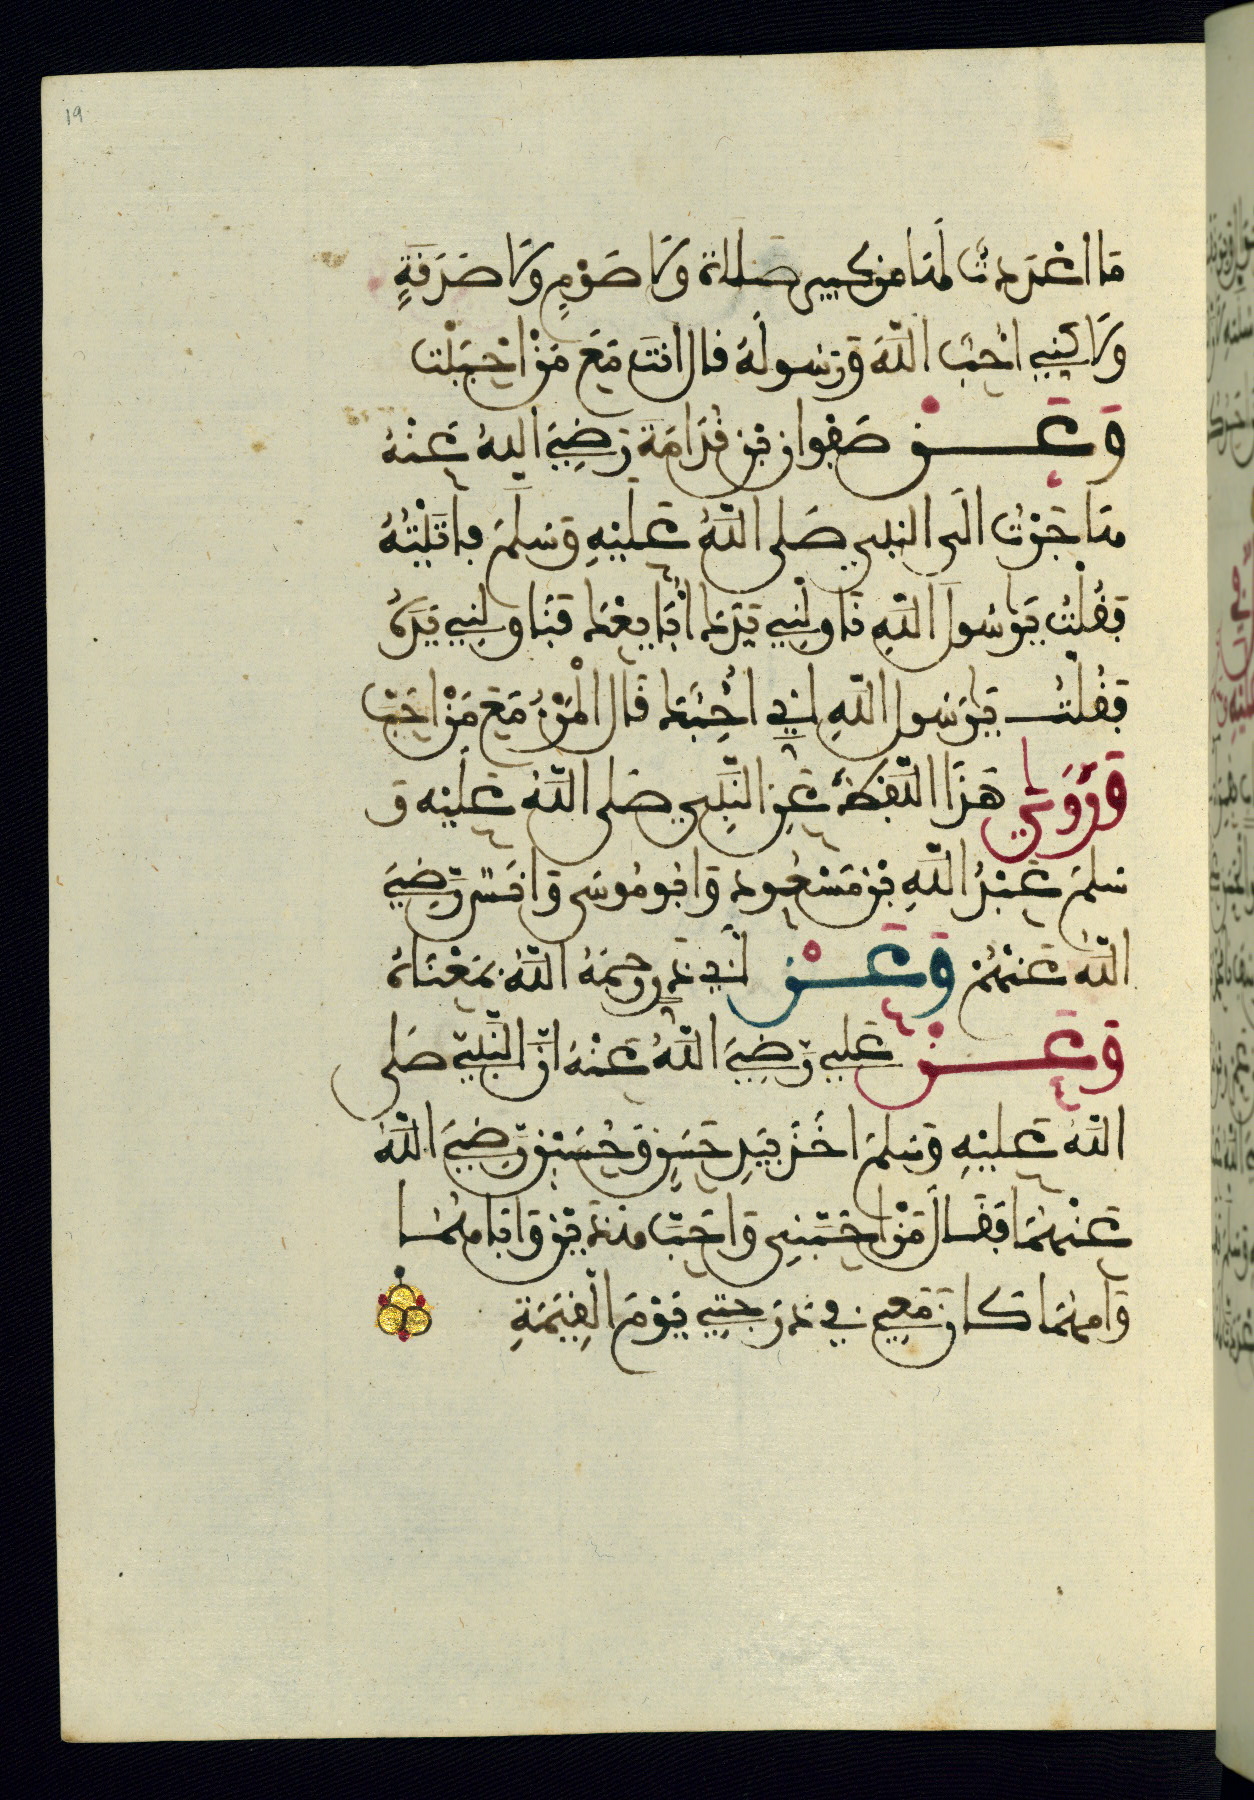 19
مَا اعْدَدتُّ لَهَا مِن كَبِيرِ صَلَاةٍ وَلَا صَوْمٍ وَلَا صَدَقَةٍ
وَلَاكِنِّي أُحِبُّ اللَّهَ وَرَسُولَهُ قَالَ انْتَ مَعَ مَنْ احْبَبْتَ
وَعَــنْ صَفْوَانَ بْنِ قُدَامَةَ رَضِيَ اللهُ عَنْهُ
هَاجَرْتُ الَى النَّبِيِّ صَلَّى اللَّهُ عَلَيْهِ وَسَلَّمَ فَأَتَيْتُهُ
فَقُلْتُ يَا رَسُولَ اللَّهِ نَاوِلْنِي يَدَكَ أُبَايِعْكَ فَنَاوَلَنِي يَدَهُ
فَقُلْتُ يَا رَسُولَ اللَّهِ إِنِّي أُحِبُّكَ قَالَ الْمَرْءُ مَعَ مَنْ احَبَّ
وَرَوَى هَذَا اللَّفْظَ عَنِ النَّبِيِّ صَلَّى اللَّهُ عَلَيْهِ وَ
سَلَّمَ عَبْدُ اللَّهِ بْنُ مَسْعُودٍ وَابُو مُوسَى وَانَسٌ رَّضِيَ
اللَّهُ عَنْهُمْ وَعَــنْ أَبِي ذَرٍّ رَحِمَهُ اللَّهُ بِمَعْنَاهُ
وَعَــنْ عَلِيٍّ رَّضِيَ اللَّهُ عَنْهُ انَّ النَّبِيَّ صَلَّى
اللَّهُ عَلَيْهِ وَسَلَّمَ اخَذَ بِيَدِ حَسَنٍ وَحُسَيْنٍ رَّضِيَ اللَّهُ
عَنْهُمَا فَقَالَ مَنْ احَبَّنِي وَاحَبَّ هَذَيْنِ وَابَاهُمَا
وَامَّهُمَا كَانَ مَعِي فِي دَرَجَتِي يَوْمَ الْقِيَمَةِ